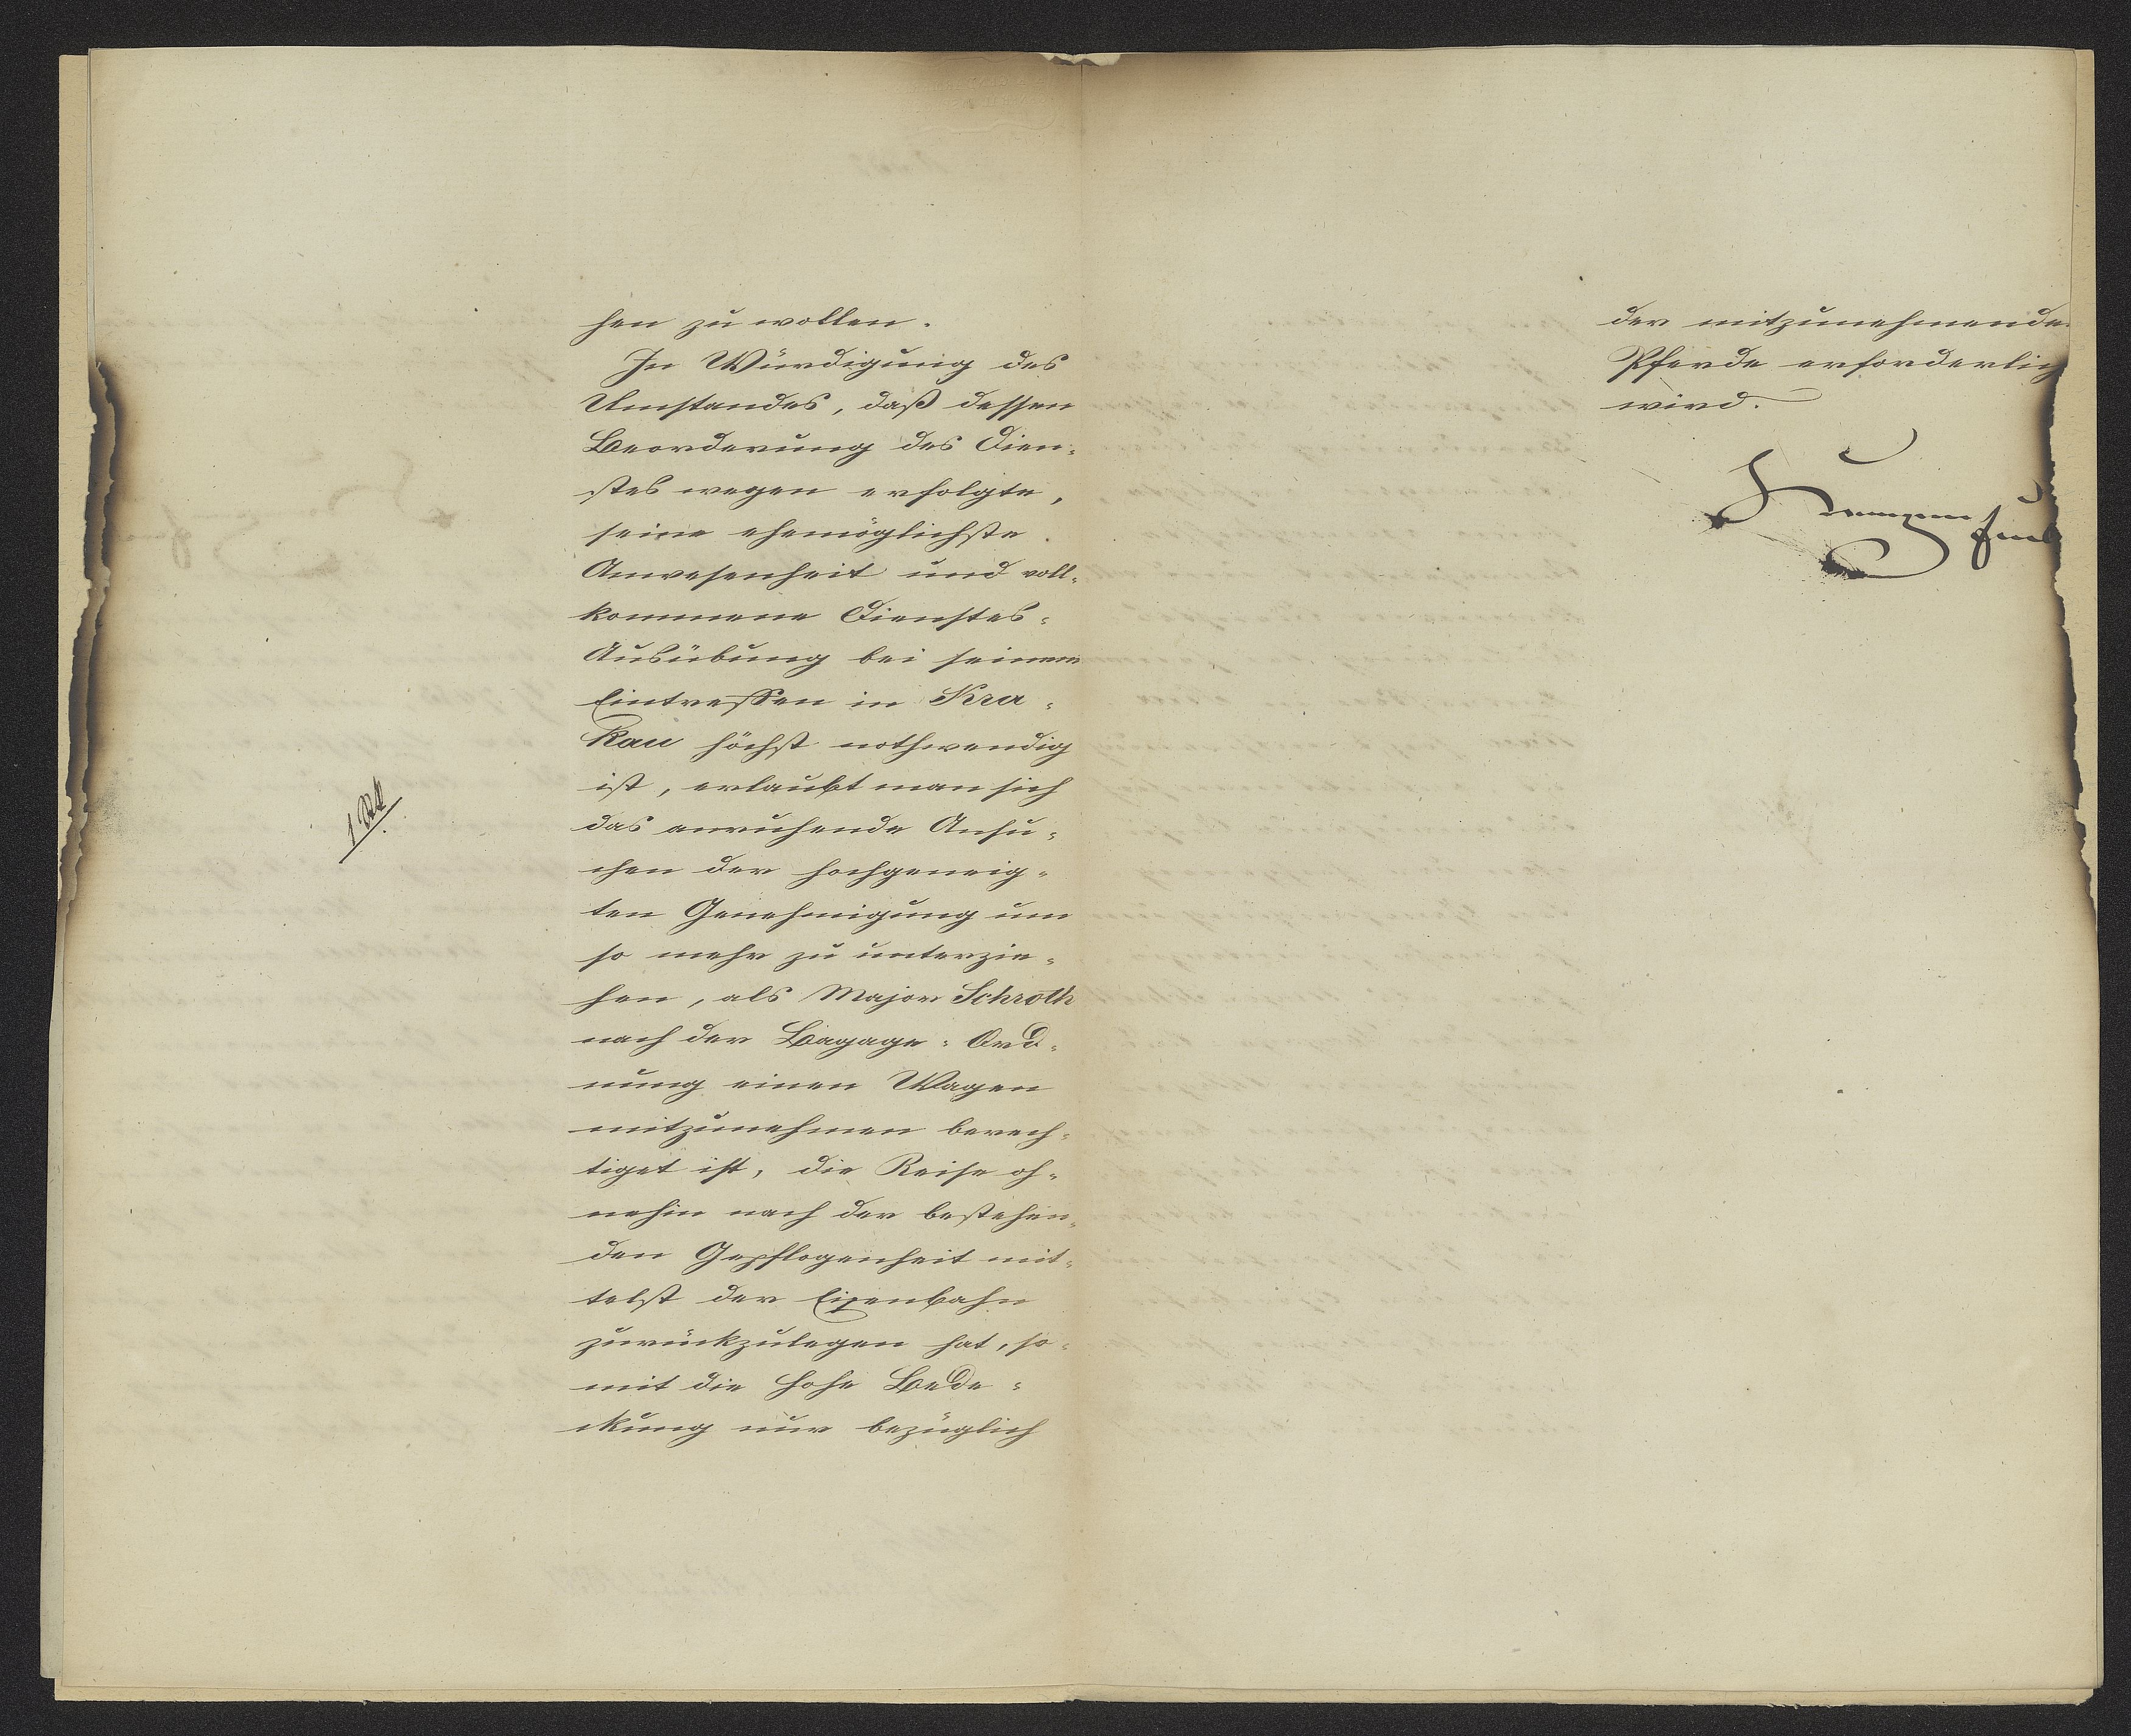 hen zu wollen.
In Würdigung des
Umstandes, daß dessen
Beorderung des Dien-
stes wegen erfolgte,
seine ehemöglichste
Anwesenheit und voll-
kommene Dienstes-
Ausübung bei seinem
Eintreffen in Kra-
kau höchst nothwendig
ist, erlaubt man sich
das anruhende Ansu-
chen der hochgeneig-
ten Genehmigung um
so mehr zu unterzie-
hen, als Major Schroth
nach der Bagage-Ord-
nung einen Wagen
mitzunehmen berech-
tiget ist, die Reise oh-
nehin nach der bestehen-
den Gepflogenheit mit-
telst der Eisenbahn
zurückzulegen hat, so-
mit die hohe Bede-
ckung nur bezüglich
der mitzunehmende
Pferde erforderlich
wird.